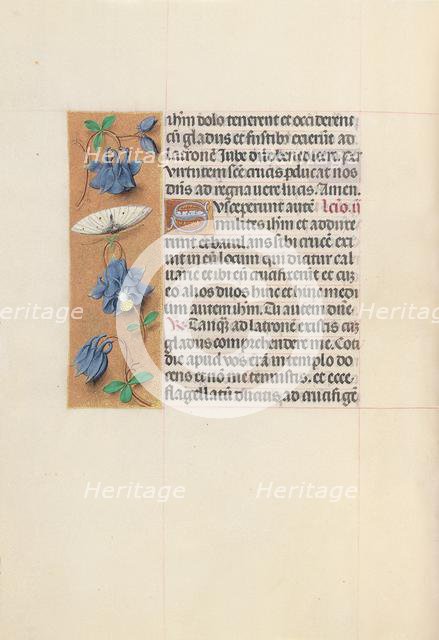 ihm dolo tenerent et occiderent
cū gladiis et fustibus exierūt ad
latronē Jube dn̄e benedicere. Per
virtutem scē crucis p̄ducat nos
dn̄s ad regna vere lucis. Amen.
Susceperunt autē lcīo. ii
milites ihm et addire
runt et baiulans sibi crucē exi
uit in eū locum qui dicitur calua
arie et ibi eū crucifixerūt et cū
eo alios duos hinc et hinc medi
um autem ihm.
Tanq̄ ad latronē existis cū
gladiis comprehendere me. Coti
die apud vos erā in templo do
cens et nō me tenuistis. et ecce
flagellatū ducitis ad crucifigē
Heritage
Heritage
Heritage
Heritage
Heritage
Heritage
Heritage
Heritage